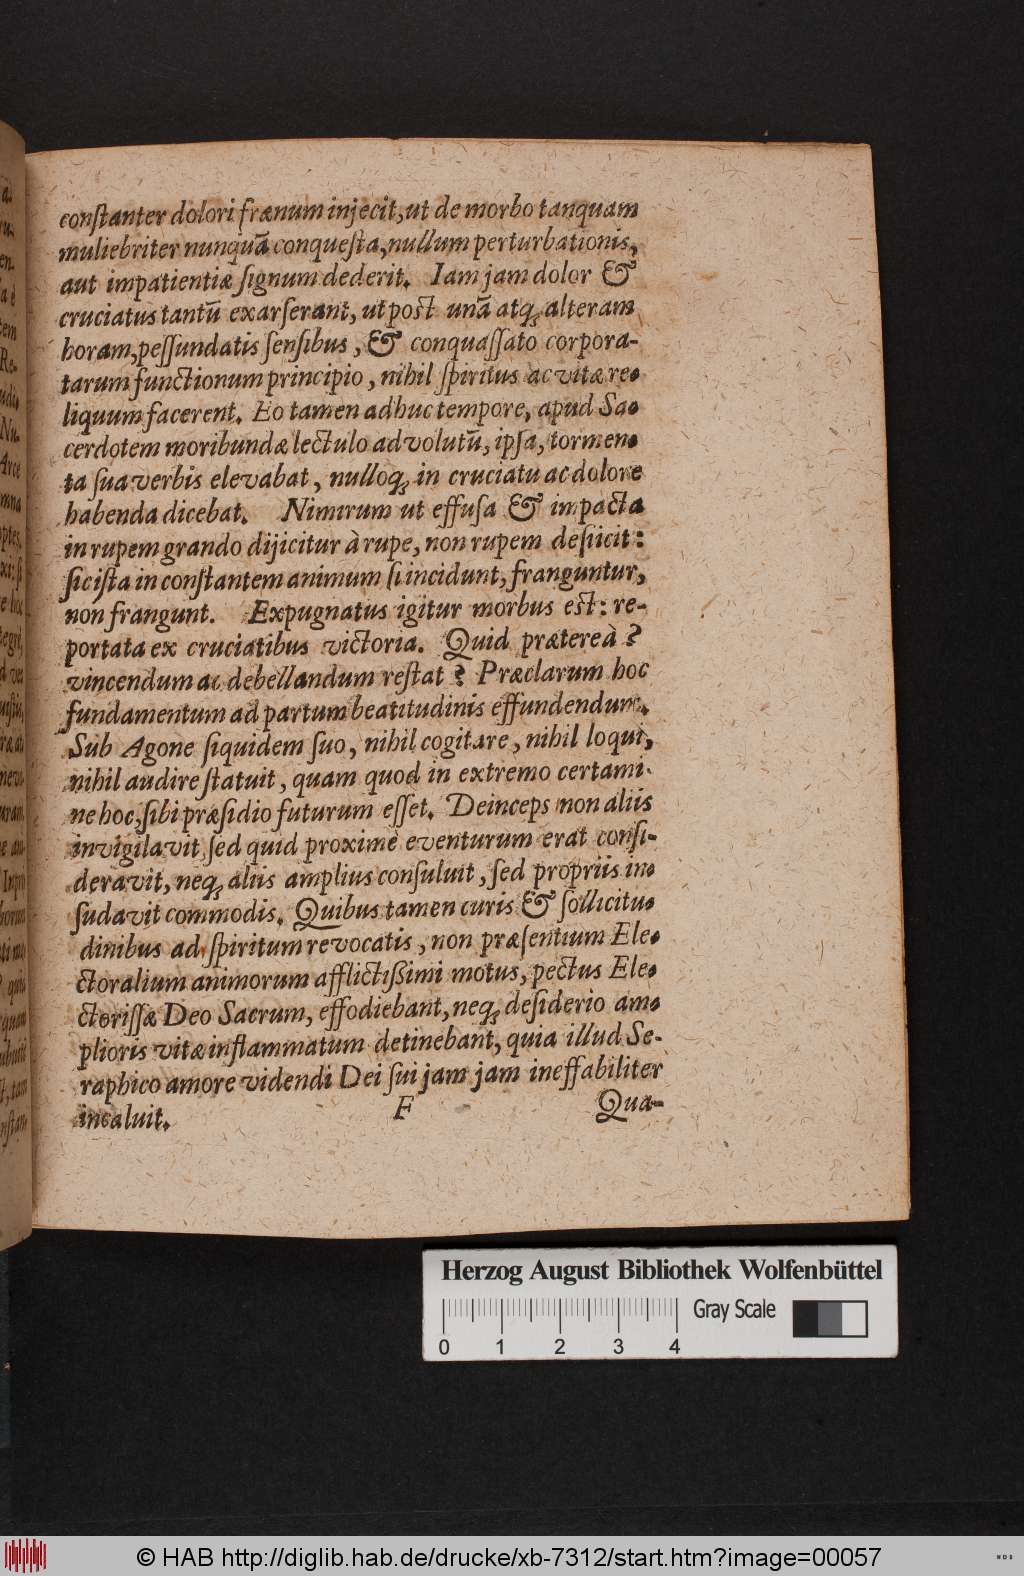 conſtanter dolori frænum injecit, ut de morbo tanquam
muliebriter nunquã conqueſta, nullum perturbationis,
aut impatientiæ ſignum dederit. Iam jam dolor &
cruciatus tantũ exarſerant, ut poſt unã atq; alteram
horam, peſſundatis ſenſibus, & conquaſſato corpora-
tarum functionum principio, nihil ſpiritus ac vitæ re-
liquum facerent. Eo tamen adhuc tempore, apud Sa-
cerdotem moribundæ lectulo advolutũ, ipſa, tormen-
ta ſua verbis elevabat, nulloq; in cruciatu ac dolore
habenda dicebat. Nimirum ut effuſa & impacta
in rupem grando dijicitur à rupe, non rupem deſiicit:
ſic iſta in conſtantem animum ſi incidunt, franguntur,
non frangunt. Expugnatus igitur morbus est: re-
portata ex cruciatibus victoria. Quid prætereà?
vincendum ac debellandum reſtat? Præclarum hoc
fundamentum ad partum beatitudinis effundendum.
Sub Agone ſiquidem ſuo, nihil cogitare, nihil loqui,
nihil audire ſtatuit, quam quod in extremo certami-
ne hoc, ſibi præſidio futurum eſſet. Deinceps non aliis
invigilavit, ſed quid proximè eventurum erat conſi-
deravit, neq; aliis amplius conſuluit, ſed propriis in-
ſudavit commodis. Quibus tamen curis & ſollicitu-
dinibus ad ſpiritum revocatis, non præſentium Ele-
ctoralium animorum afflictißimi motus, pectus Ele-
ctoriſſæ Deo Sacrum, effodiebant, neq; deſiderio am-
plioris vitæ inflammatum detinebant, quia illud Se-
raphico amore videndi Dei ſui jam jam ineffabiliter
incaluit. F Qua-
Herzog August Bibliothek Wolfenbüttel
0 1 2 3 4 Gray Scale
© HAB http://diglib.hab.de/drucke/xb-7312/start.htm?image=00057